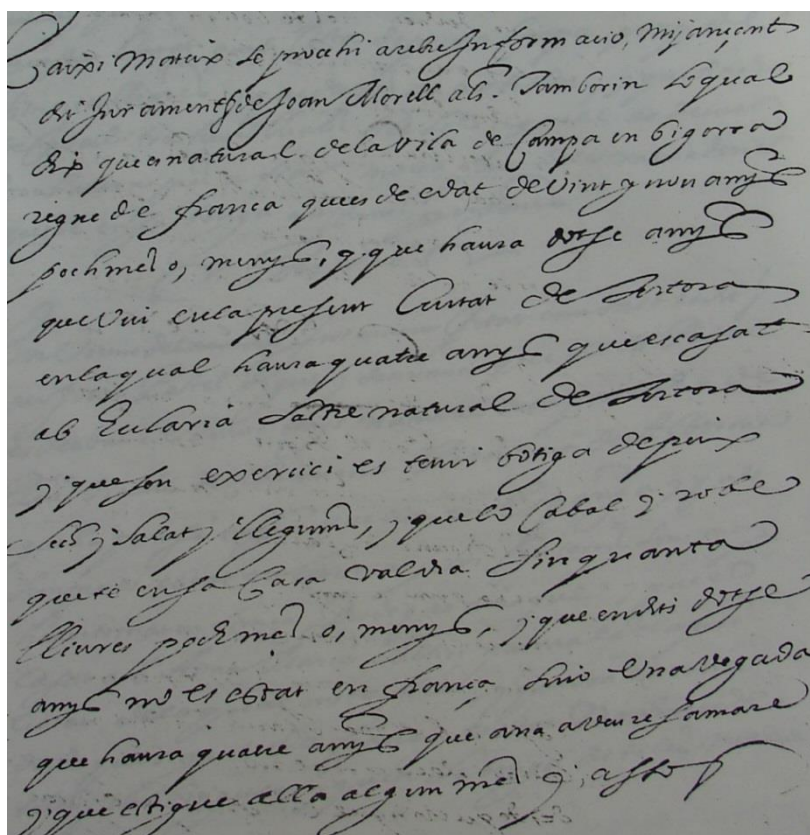 E aixi mateix se procehi a rebre Informacio, mijançant
dit Jurament, de Joan Morell als. Tamborin lo qual
dix que es natural dela vila de Campa en bigorra
regne de frança qui es de edat de vint y nou anys
poch mes o, menys, y que haura dotse anys
que viu en la present Ciutat de Tortosa
en la qual haura quatre anys que es casat
ab Eularia natural de Tortosa
y que son exercici es tenir botiga de peix
sech y salat y llegums, y que lo Cabal y roba
que te en sa Casa valdra Sinquanta
lliures poch mes o, menys, y que en dits dotse
anys no es estat en frança sino una vegada
que haura quatre anys que ana a veure sa mare
y que estigue alla algun mes y,